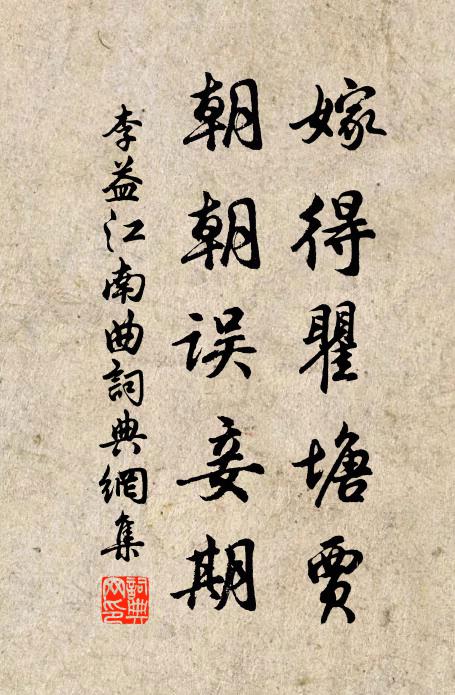 嫁得瞿塘賈
朝朝误妾期
李益江南曲詞典網集
詞典
网印